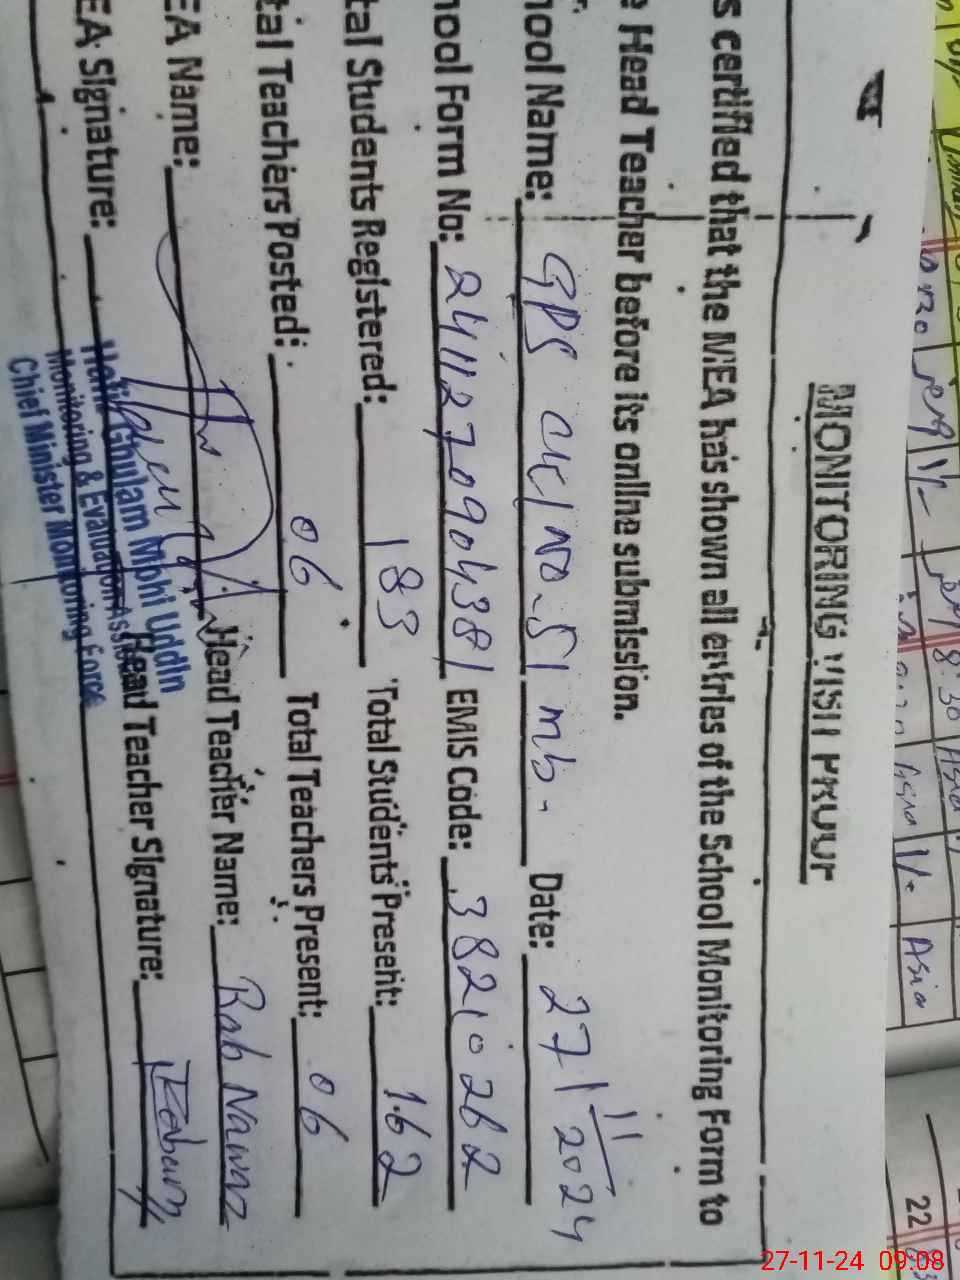 MONITORING VISIT PROOF
s certified that the MEA has shown all entries of the School Monitoring Form to
Head Teacher before its online submission.
hool Name: GPS Ck No. 51 mb. Date: 27/11/2024
hool Form No: 2411270904381 EMIS Code: 38210262
tal Students Registered: 183 Total Students Present: 162
tal Teachers Posted: 06 Total Teachers Present: 06
EA Name: Head Teacher Name: Rab Nawaz
EA Signature: Head Teacher Signature:
Hafiz Ghulam Mohi Uddin
Monitoring & Evaluation Ass
Chief Minister Monitoring Force
8:30 Asia
Asia
Asia
22
27-11-24 09:08